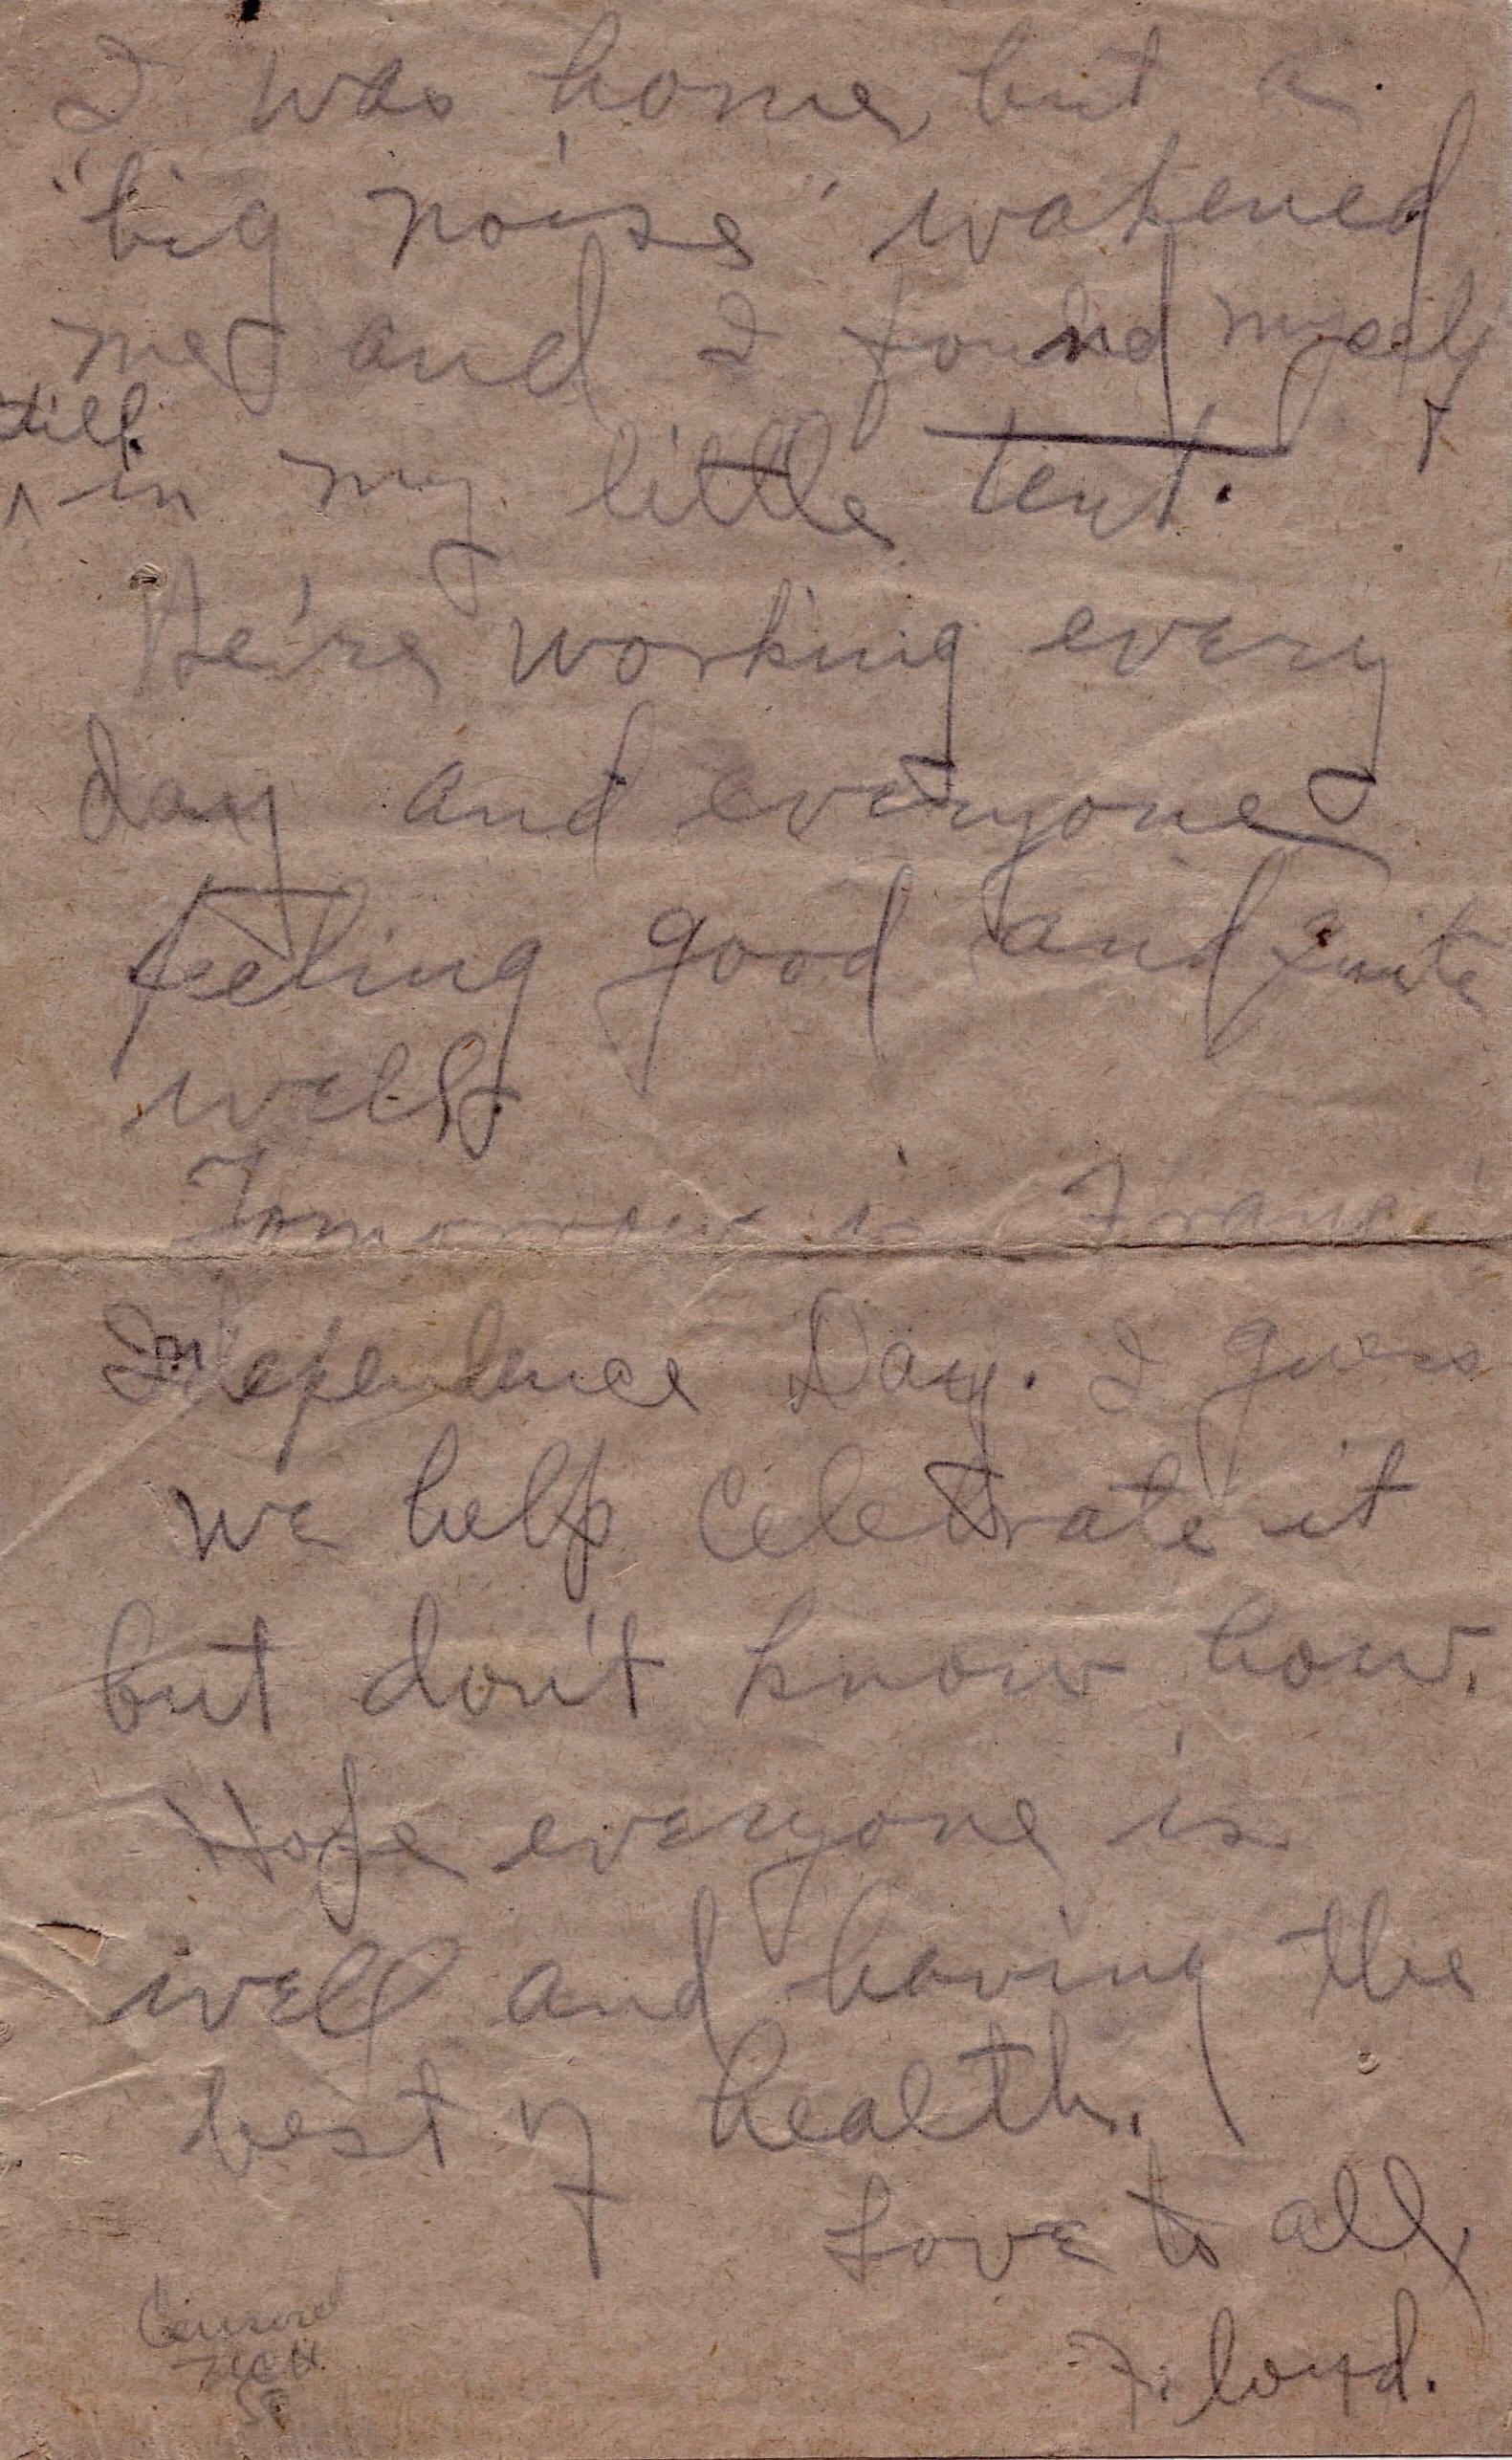 I was home, but a
"big noise" wakened
me and I found myself
still
^ in my little tent.
We're working every
day and everyone
feeling good and quite
well.
Tomorrow is France'
Independence Day. I guess
we help celebrate it
but don't know how.
Hope everyone is
well and having the
best of health.
Love to all,
Floyd.
Censored